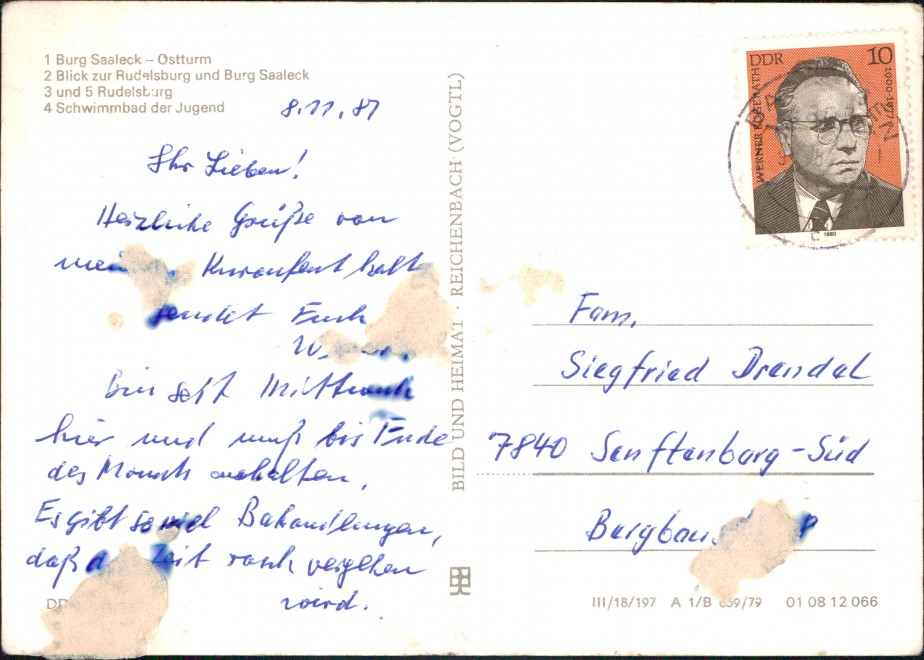 1 Burg Saaleck – Ostturm
2 Blick zur Rudelsburg und Burg Saaleck
3 und 5 Rudelsburg
4 Schwimmbad der Jugend
8.11.81
Ihr Lieben!
Herzliche Grüße von
Kuraufenthalt
sendet Euch
Bin seit Mittwoch
hier und muß bis Ende
des Monats aushalten.
Es gibt soviel Behandlungen,
daß Zeit rasch vergehen
wird.
BILD UND HEIMAT · REICHENBACH (VOGTL)
DDR 10
WERNER EGGERATH
1900-1977
1980
Fam.
Siegfried Drendal
7840 Senftenberg-Süd
III/18/197 A 1/B 01 08 12 066